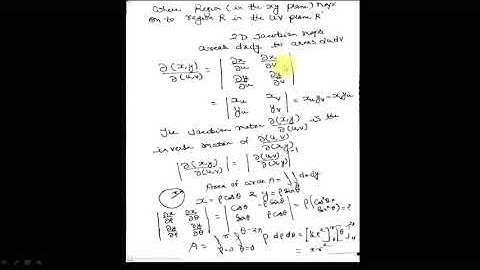 where Region (in the xy plane) maps
on to region R in the uv plane R
2D Jacobian maps
areas dxdy to areas dudv
∂(x,y)/∂(u,v) = | ∂x/∂u ∂x/∂v |
| ∂y/∂u ∂y/∂v |
= | xu xv | = xu yv - xv yu
| yu yv |
The Jacobian matrix ∂(x,y)/∂(u,v) is the
inverse matrix of ∂(u,v)/∂(x,y)
|∂(x,y)/∂(u,v)| = |∂(u,v)/∂(x,y)|⁻¹
Area of circle A = ∫∫ dxdy
x = ρ cosθ & y = ρ sinθ
| ∂x/∂ρ ∂x/∂θ | = | cosθ -ρ sinθ | = ρ(cos²θ+
| ∂y/∂ρ ∂y/∂θ | | sinθ ρ cosθ | sin²θ) = ρ
A = ∫ ρ=0 ∫ θ=0 θ=2π ρ dρ dθ = [½ρ²] [θ]
= πr²